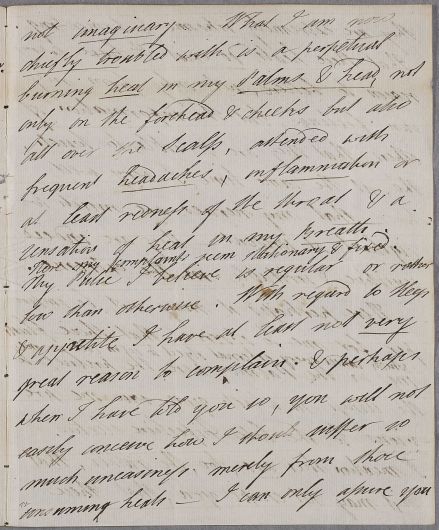 not imaginary What I am now
chiefly troubled with is a perpetual
burning heat in my Palms & head, not
only on the forehead & cheeks but also
all over the Scalp, attended with
frequent headaches, inflammation or
at least redness of the throat & a
sensation of heat in my breath.
These my complaints seem stationary & fixed.
My Pulse I believe is regular or rather
low than otherwise. With regard to sleep
& appetite I have at least not very
great reason to complain. & perhaps
when I have told you so, you will not
easily conceive how I should suffer so
much uneasiness merely from those
consuming heats — I can only assure you